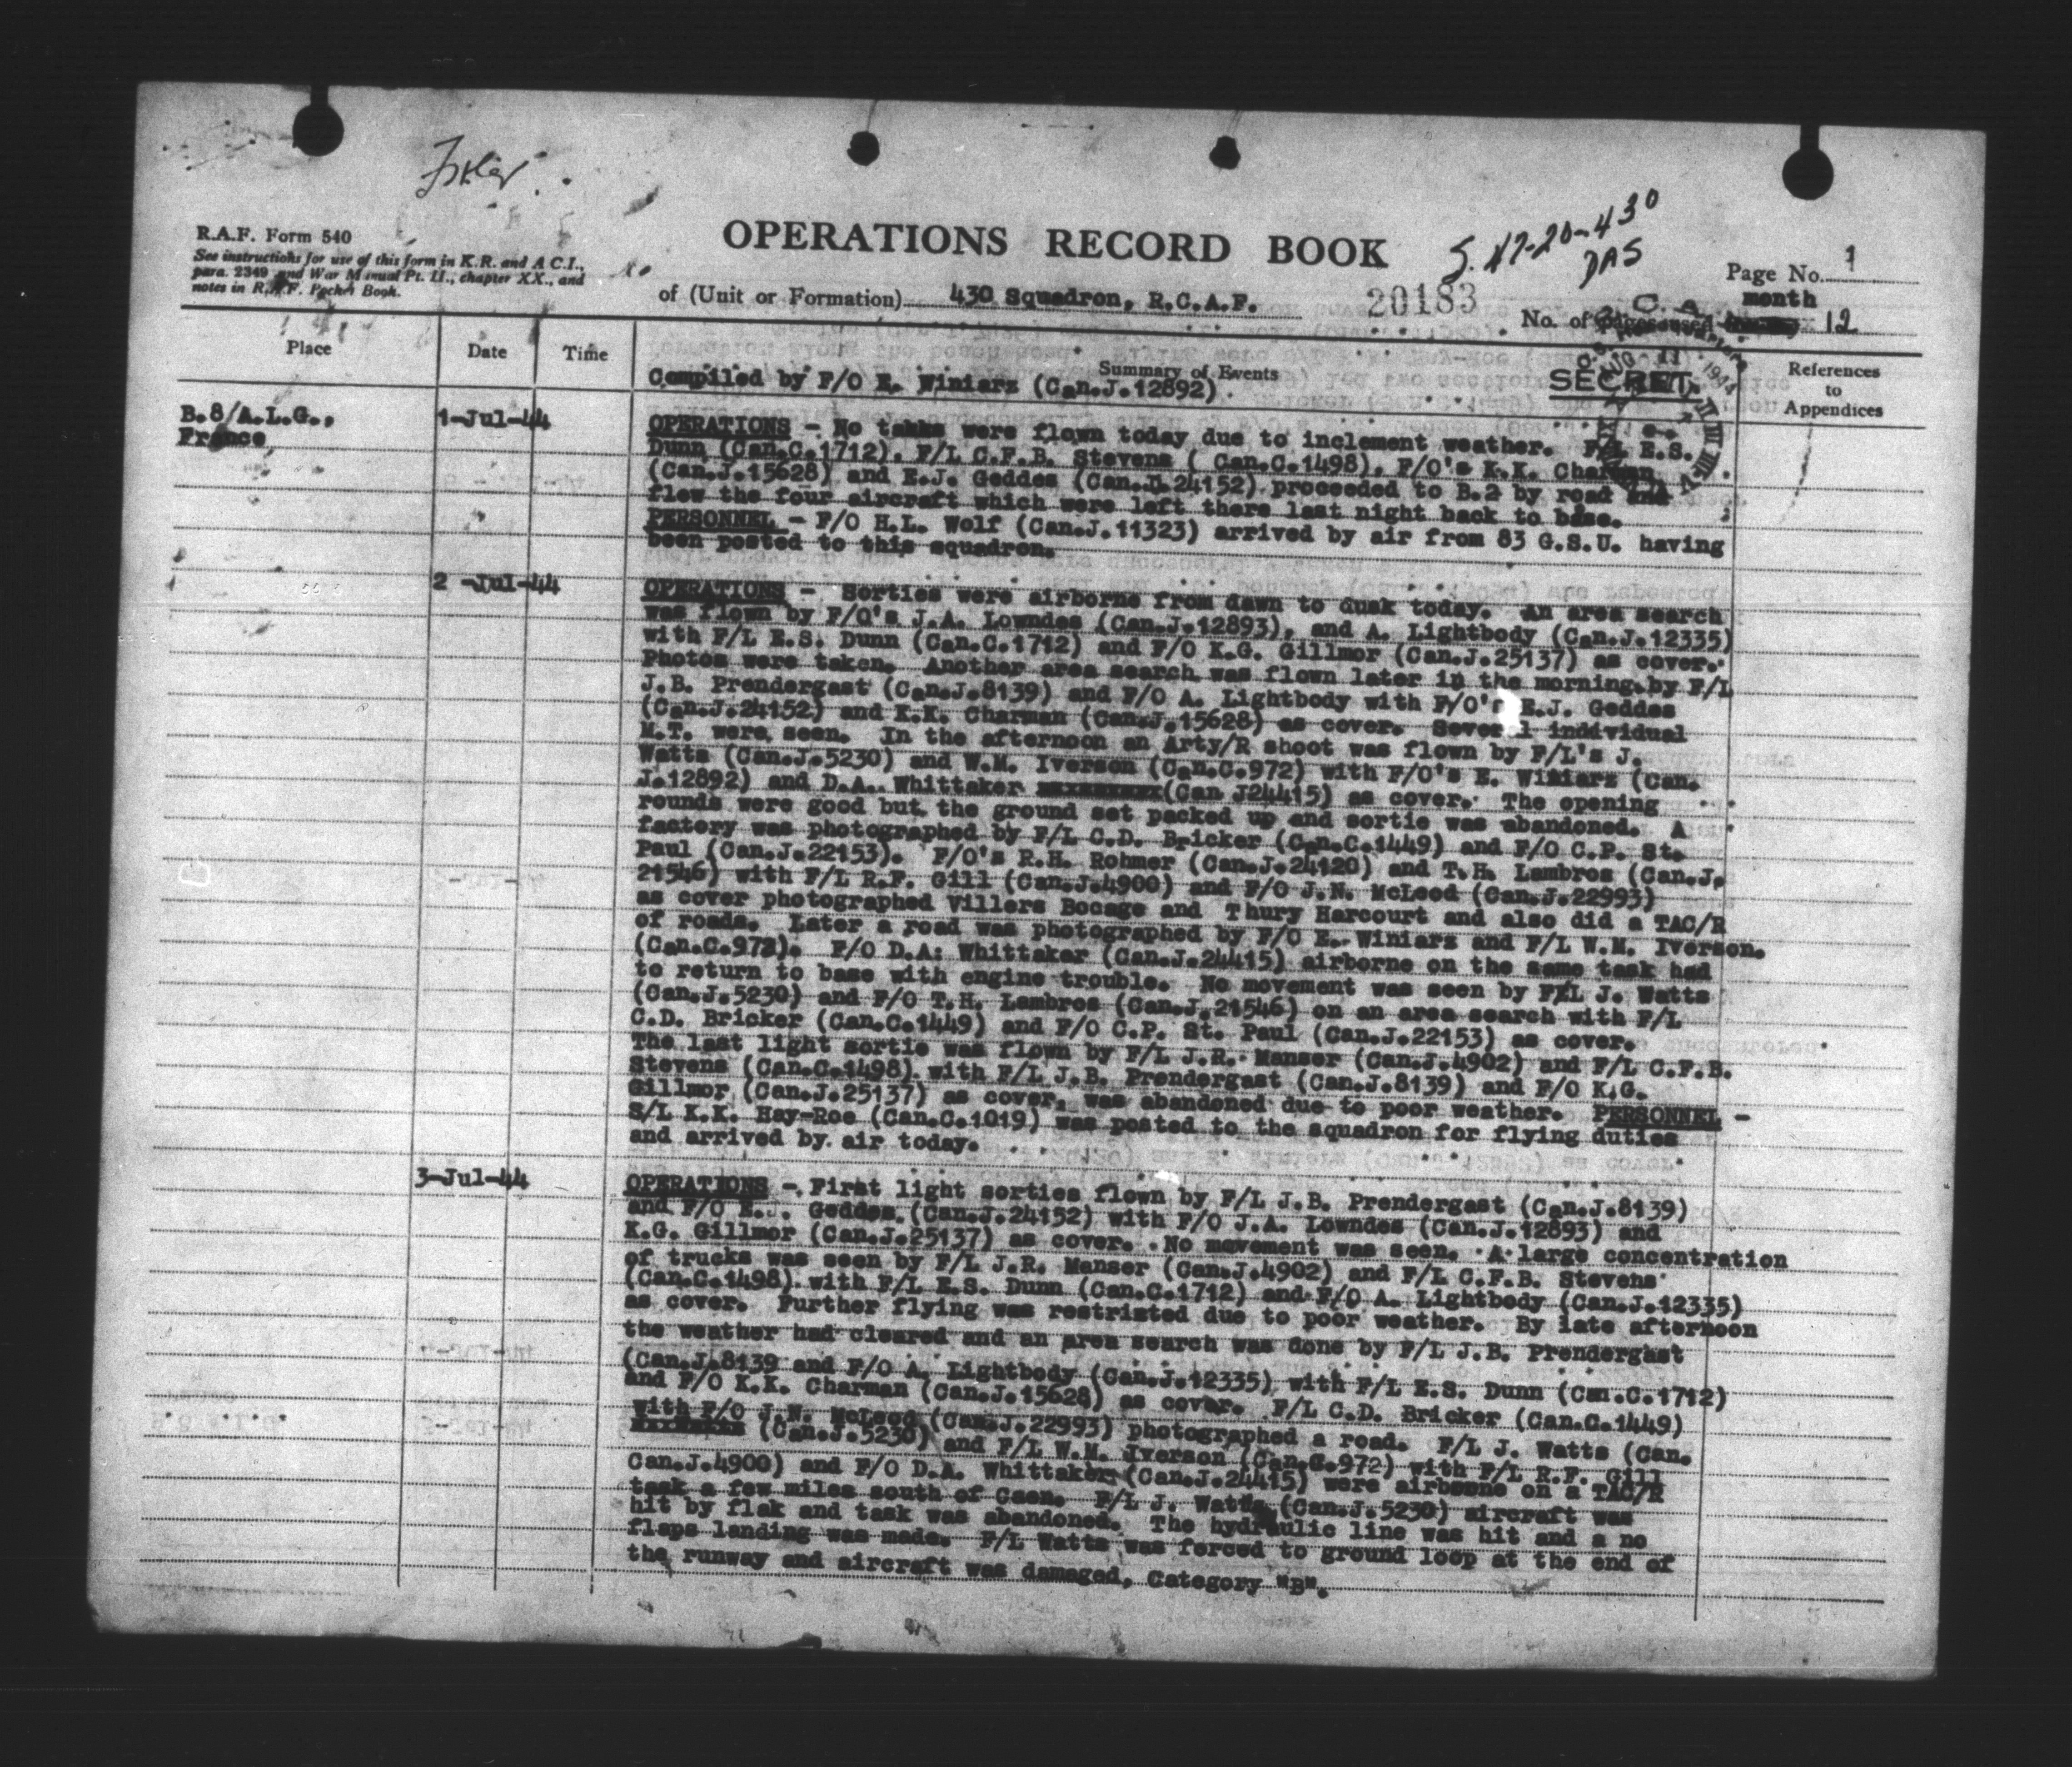 R.A.F. Form 540
See instructions for use of this form in K.R. and A C.I.,
para. 2349 and War Manual Pt. II., chapter XX., and
notes in R.A.F. Pocket Book.
OPERATIONS RECORD BOOK
S. 47-20-430
DAS
Page No. 1
of (Unit or Formation) 430 Squadron, R.C.A.F.
20183
month
No. of pages used 12
Place
Date
Time
Summary of Events
References
to
Appendices
SECRET
Compiled by F/O E. Winiarz (Can.J.12892).
B.8/A.L.G.,
France
1-Jul-44
OPERATIONS - No tasks were flown today due to inclement weather. F/L E.S.
Dunn (Can.C.1712), F/L C.F.B. Stevens ( Can.C.1498), F/O's K.K. Charman
(Can.J.15628) and E.J. Geddes (Can.J.24152) proceeded to B.2 by road and
flew the four aircraft which were left there last night back to base.
PERSONNEL - F/O H.L. Wolf (Can.J.11323) arrived by air from 83 G.S.U. having
been posted to this squadron.
2 -Jul-44
OPERATIONS - Sorties were airborne from dawn to dusk today. An area search
was flown by F/O's J.A. Lowndes (Can.J.12893), and A. Lightbody (Can.J.12335)
with F/L E.S. Dunn (Can.C.1712) and F/O K.G. Gillmor (Can.J.25137) as cover.
Photos were taken. Another area search was flown later in the morning by F/L
J.B. Prendergast (Can.J.8139) and F/O A. Lightbody with F/O's E.J. Geddes
(Can.J.24152) and K.K. Charman (Can.J.15628) as cover. Several individual
M.T. were seen. In the afternoon an Arty/R shoot was flown by F/L's J.
Watts (Can.J.5230) and W.M. Iverson (Can.C.972) with F/O's E. Winiarz (Can.
J.12892) and D.A. Whittaker (Can J24415) as cover. The opening
rounds were good but the ground set packed up and sortie was abandoned. A
factory was photographed by F/L C.D. Bricker (Can.C.1449) and F/O C.P. St.
Paul (Can.J.22153). F/O's R.H. Rohmer (Can.J.24120) and T.H. Lambros (Can.J.
21546) with F/L R.F. Gill (Can.J.4900) and F/O J.N. McLeod (Can.J.22993)
as cover photographed Villers Bocage and Thury Harcourt and also did a TAC/R
of roads. Later a road was photographed by F/O E. Winiarz and F/L W.M. Iverson.
(Can.C.972). F/O D.A: Whittaker (Can.J.24415) airborne on the same task had
to return to base with engine trouble. No movement was seen by F/L J. Watts
(Can.J.5230) and F/O T.H. Lambros (Can.J.21546) on an area search with F/L
C.D. Bricker (Can.C.1449) and F/O C.P. St. Paul (Can.J.22153) as cover.
The last light sortie was flown by F/L J.R. Manser (Can.J.4902) and F/L C.F.B.
Stevens (Can.C.1498) with F/L J.B. Prendergast (Can.J.8139) and F/O K.G.
Gillmor (Can.J.25137) as cover, was abandoned due to poor weather. PERSONNEL -
S/L K.K. Hay-Roe (Can.C.1019) was posted to the squadron for flying duties
and arrived by air today.
3-Jul-44
OPERATIONS - First light sorties flown by F/L J.B. Prendergast (Can.J.8139)
and F/O E.J. Geddes (Can.J.24152) with F/O J.A. Lowndes (Can.J.12893) and
K.G. Gillmor (Can.J.25137) as cover. No movement was seen. A large concentration
of trucks was seen by F/L J.R. Manser (Can.J.4902) and F/L C.F.B. Stevens
(Can.C.1498) with F/L E.S. Dunn (Can.C.1712) and F/O A. Lightbody (Can.J.12335)
as cover. Further flying was restricted due to poor weather. By late afternoon
the weather had cleared and an area search was done by F/L J.B. Prendergast
(Can.J.8139 and F/O A. Lightbody (Can.J.12335) with F/L E.S. Dunn (Can.C.1712)
and F/O K.K. Charman (Can.J.15628) as cover. F/L C.D. Bricker (Can.C.1449)
with F/O J.N. McLeod (Can.J.22993) photographed a road. F/L J. Watts (Can.
(Can.J.5230) and F/L W.M. Iverson (Can.C.972) with F/L R.F. Gill
Can.J.4900) and F/O D.A. Whittaker (Can.J.24415) were airborne on a TAC/R
task a few miles south of Caen. F/L J. Watts (Can.J.5230) aircraft was
hit by flak and task was abandoned. The hydraulic line was hit and a no
flaps landing was made. F/L Watts was forced to ground loop at the end of
the runway and aircraft was damaged, Category "B".